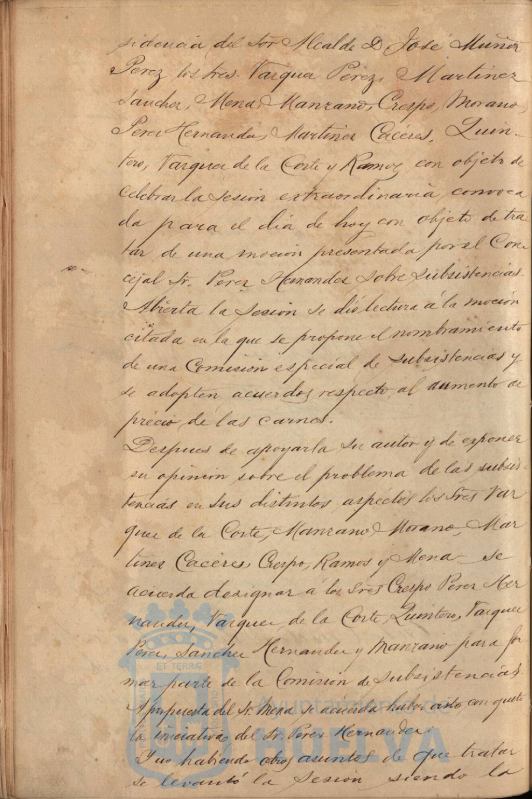 sidencia del Sor Alcalde D. José Muñoz
Perez los Sres. Vazquez Perez, Martinez
Sanchez, Mena, Manzano, Crespo, Morano,
Perez Hernandez, Martinez Cáceres, Quin-
tero, Vazquez de la Corte y Ramos, con objeto de
celebrar la sesión extraordinaria convoca
da para el dia de hoy con objeto de tra
tar de una moción presentada por el Con
cejal Sr. Perez Hernandez sobre subsistencias.
Abierta la sesión se dió lectura á la moción
citada en la que se propone el nombramiento
de una Comisión especial de subsistencias y
se adopten acuerdos respecto al aumento de
precio de las carnes.
Despues de apoyarla su autor y de exponer
su opinión sobre el problema de las subsis
tencias en sus distintos aspectos los Sres Vaz
quez de la Corte, Manzano, Morano, Mar
tinez Cáceres, Crespo, Ramos y Mena se
acuerda designar á los Sres Crespo Perez Her
nandez, Vazquez de la Corte, Quintero, Vazquez
Perez, Sanchez Hernandez y Manzano para for
mar parte de la Comisión de subsistencias.
A propuesta del Sr. Mena se acuerda haber visto con gusto
la iniciativa del Sr. Perez Hernandez.
Y no habiendo otros asuntos de que tratar
se levantó la sesión siendo la
ET TERRIS
HUELVA